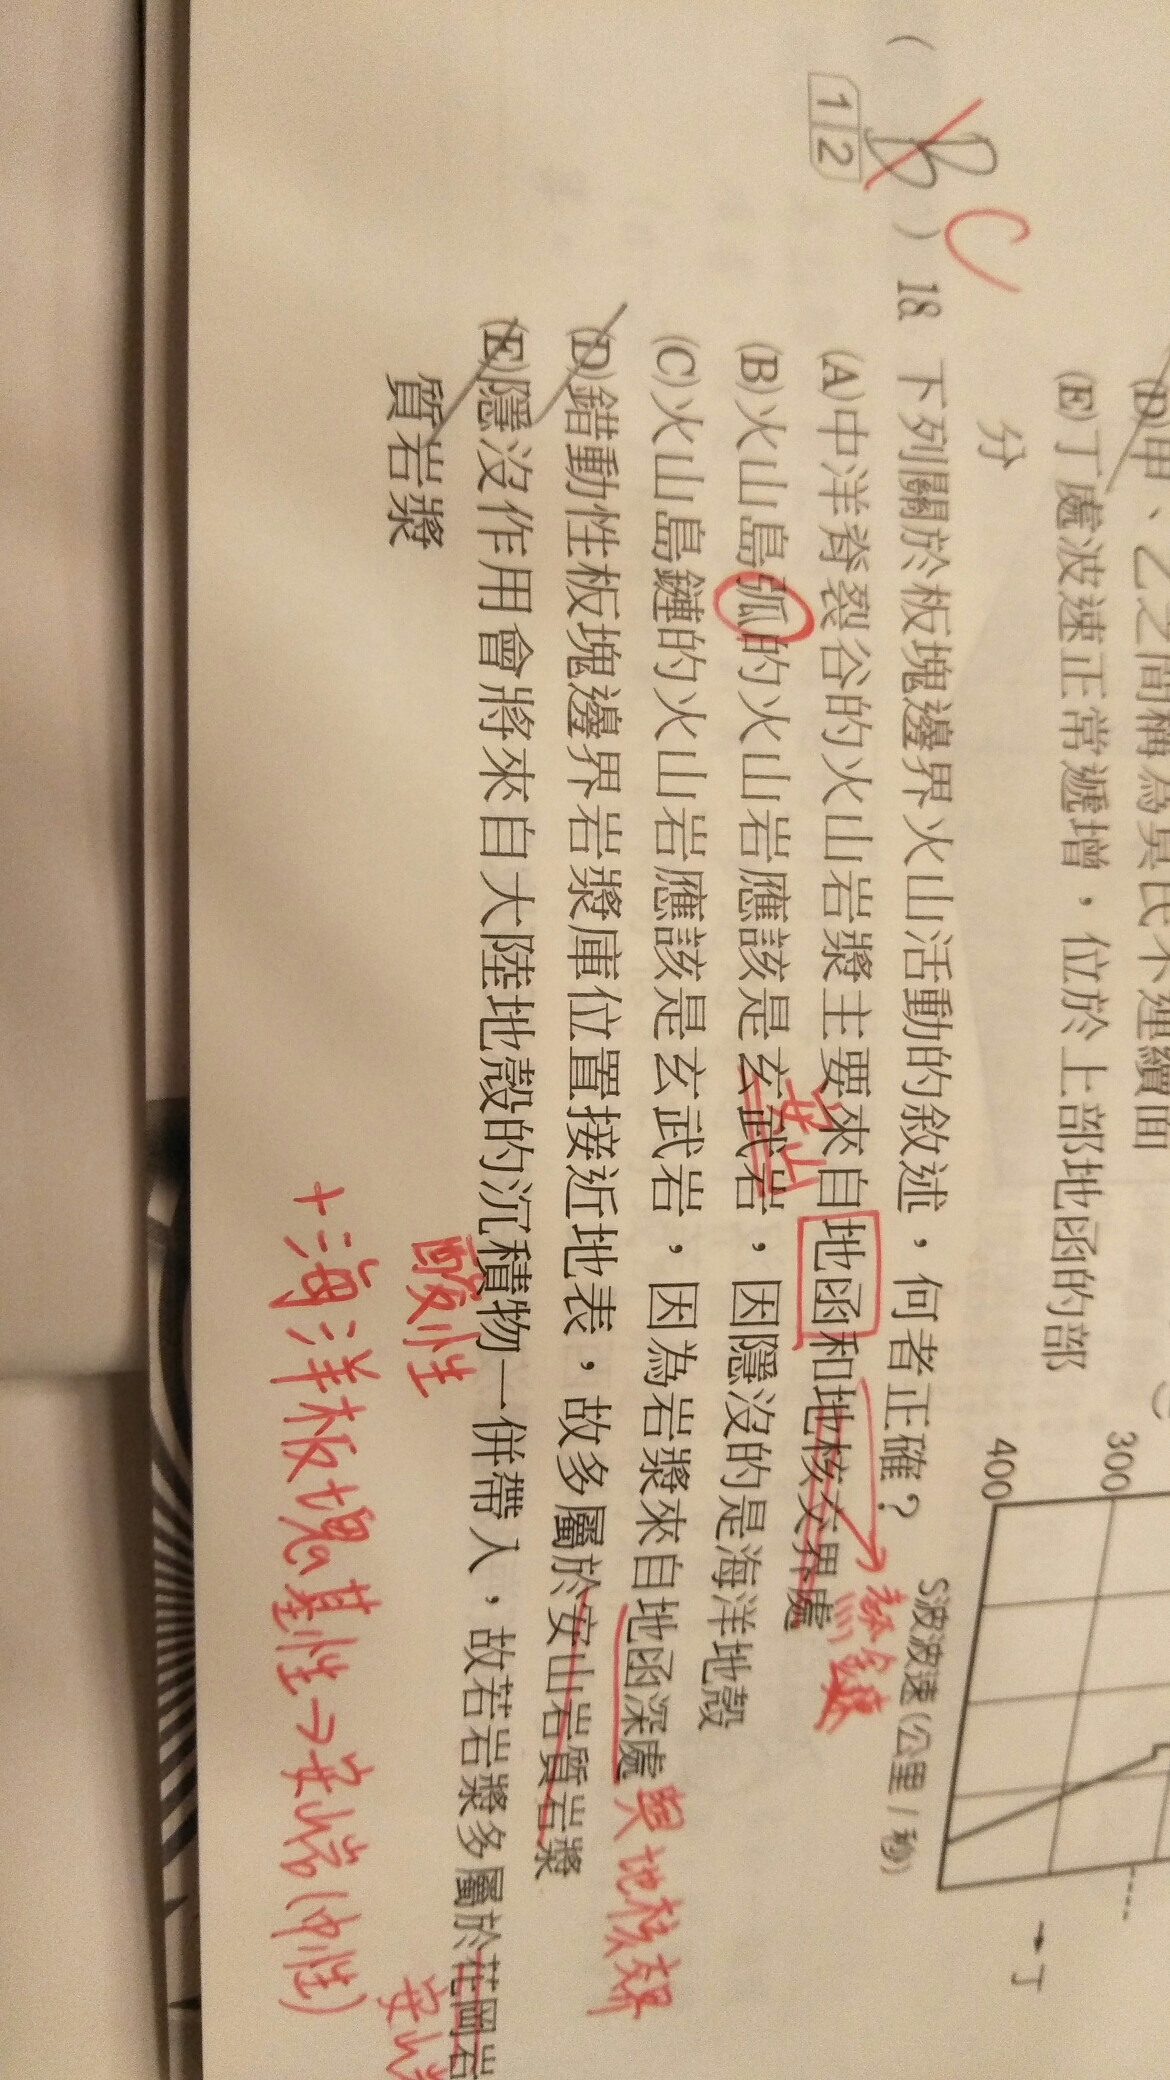 (D)甲、乙之間稱為莫氏不連續面
(E)丁處波速正常遞增，位於上部地函的部
分
300
400
S波波速(公里/秒)
丁
C
( B ) 18. 下列關於板塊邊界火山活動的敘述，何者正確？
12
(A)中洋脊裂谷的火山岩漿主要來自地函和地核交界處
熱
安山
(B)火山島弧的火山岩應該是玄武岩，因隱沒的是海洋地殼
(C)火山島鏈的火山岩應該是玄武岩，因為岩漿來自地函深處
與地核交界
(D)錯動性板塊邊界岩漿庫位置接近地表，故多屬於安山岩質岩漿
(E)隱沒作用會將來自大陸地殼的沉積物一併帶入，故若岩漿多屬於花岡岩
質岩漿
酸性
安山
+海洋板塊基性→安山岩(中性)